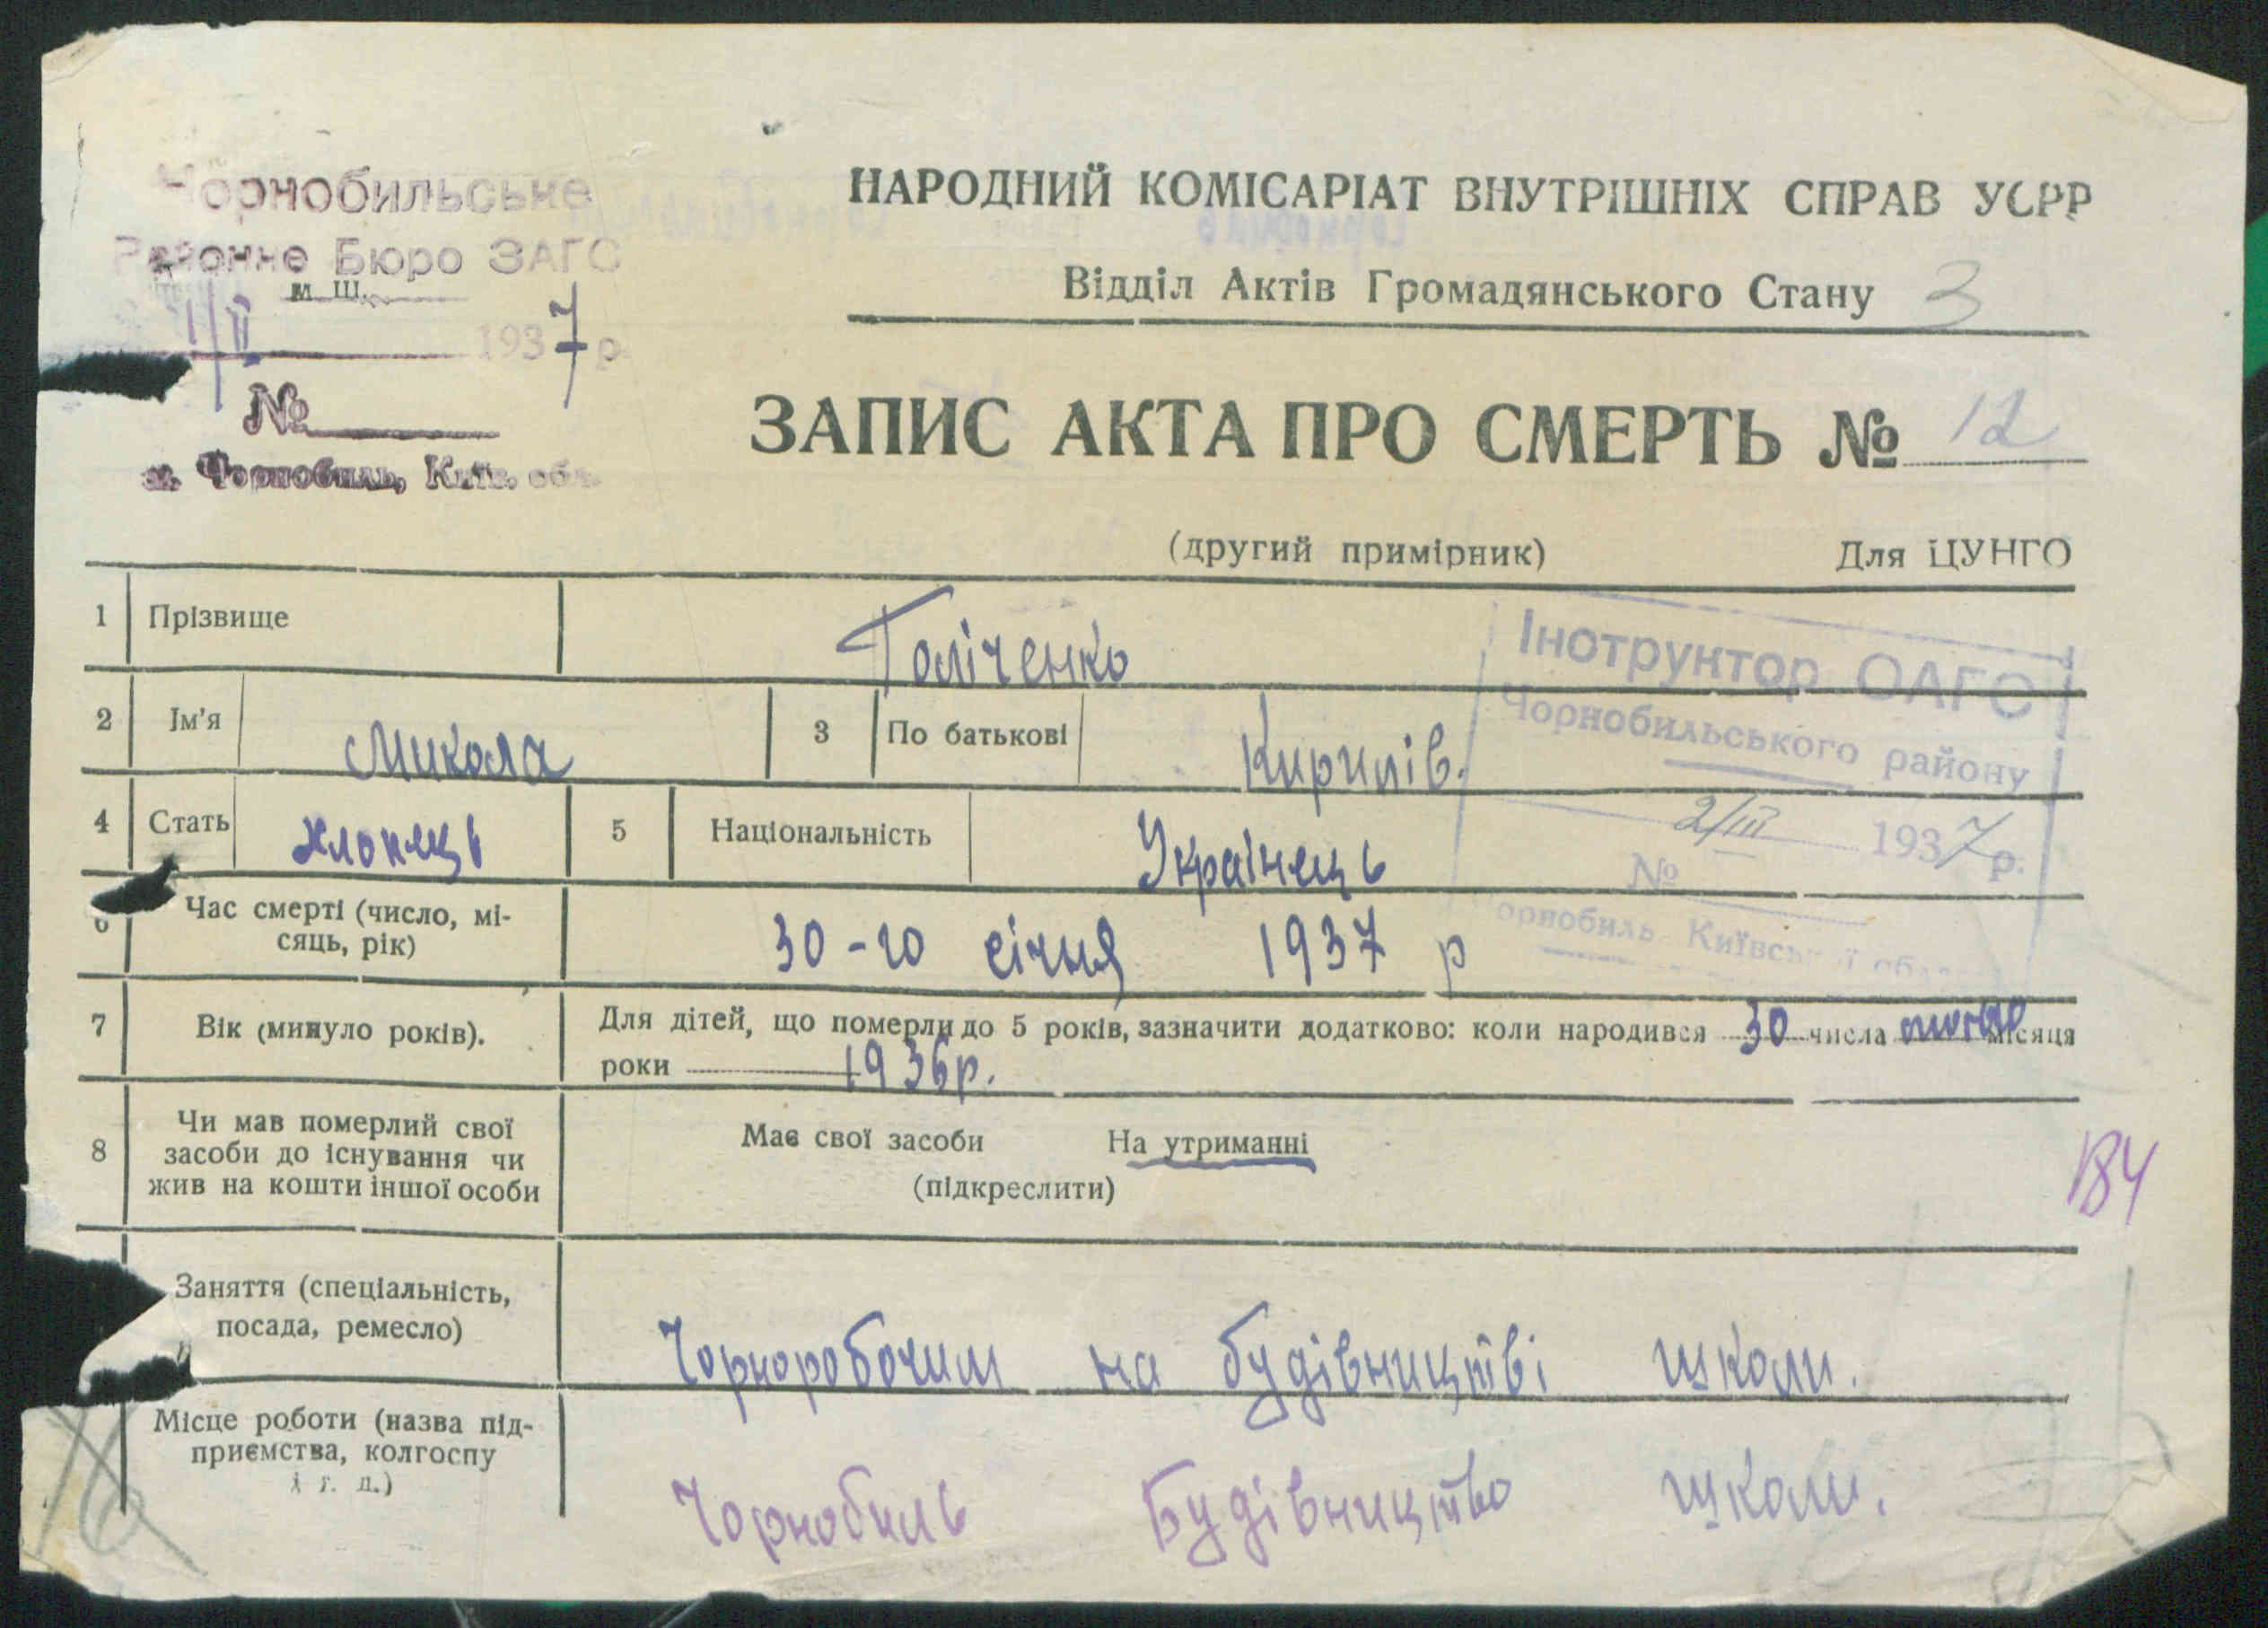 Чорнобильське
Районне Бюро ЗАГС
м. Ш.
1/II 1937 р.
№
м. Чорнобиль, Київ. обл.
НАРОДНИЙ КОМІСАРІАТ ВНУТРІШНІХ СПРАВ УСРР
Відділ Актів Громадянського Стану 3
ЗАПИС АКТА ПРО СМЕРТЬ № 12
(другий примірник) Для ЦУНГО
1 Прізвище Голіченко
Інструктор ОАГС
Чорнобильського району
2/III 1937 р.
№
Чорнобиль Київської обл.
2 Ім'я Микола 3 По батькові Кирилів.
4 Стать хлопець 5 Національність Українець
6 Час смерті (число, мі-
сяць, рік) 30-го січня 1937 р
7 Вік (минуло років). Для дітей, що померли до 5 років, зазначити додатково: коли народився 30 числа місяця
роки 1936р.
8 Чи мав померлий свої
засоби до існування чи
жив на кошти іншої особи
Має свої засоби На утриманні
(підкреслити)
184
Заняття (спеціальність,
посада, ремесло) Чорноробочим на будівництві школи.
Місце роботи (назва під-
приємства, колгоспу
і т. д.) Чорнобиль Будівництво школи.